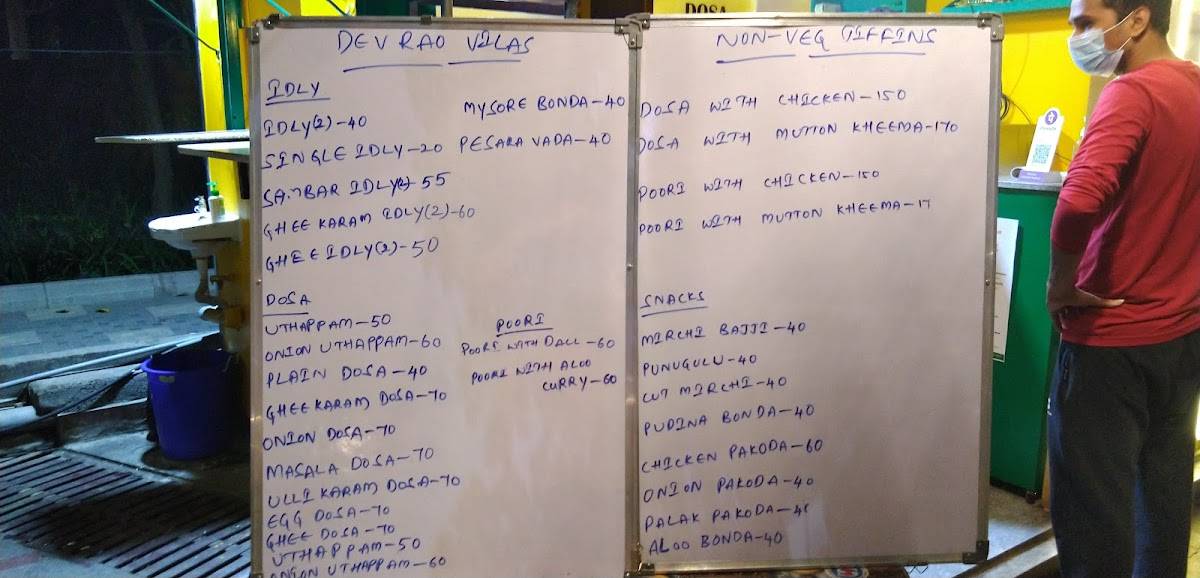 DOSA
DEV RAO VILAS
IDLY
IDLY(2)-40
SINGLE IDLY-20
SAMBAR IDLY(2)-55
GHEE KARAM IDLY(2)-60
GHEE IDLY(2)-50
MYSORE BONDA-40
PESARA VADA-40
DOSA
UTHAPPAM-50
ONION UTHAPPAM-60
PLAIN DOSA-40
GHEE KARAM DOSA-70
ONION DOSA-70
MASALA DOSA-70
ULLI KARAM DOSA-70
EGG DOSA-70
GHEE DOSA-70
UTHAPPAM-50
ONION UTHAPPAM-60
POORI
POORI WITH DALL-60
POORI WITH ALOO
CURRY-60
NON-VEG TIFFINS
DOSA WITH CHICKEN-150
DOSA WITH MUTTON KHEEMA-170
POORI WITH CHICKEN-150
POORI WITH MUTTON KHEEMA-17
SNACKS
MIRCHI BAJJI-40
PUNUGULU-40
CUT MIRCHI-40
PUDINA BONDA-40
CHICKEN PAKODA-60
ONION PAKODA-40
PALAK PAKODA-40
ALOO BONDA-40